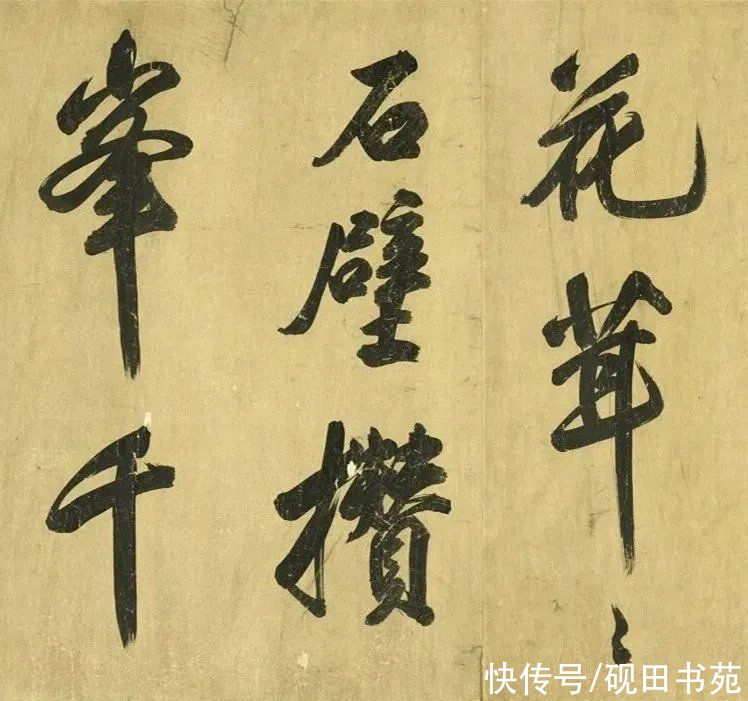 花茸〻
石壁攢
峯千
快传号/砚田书苑